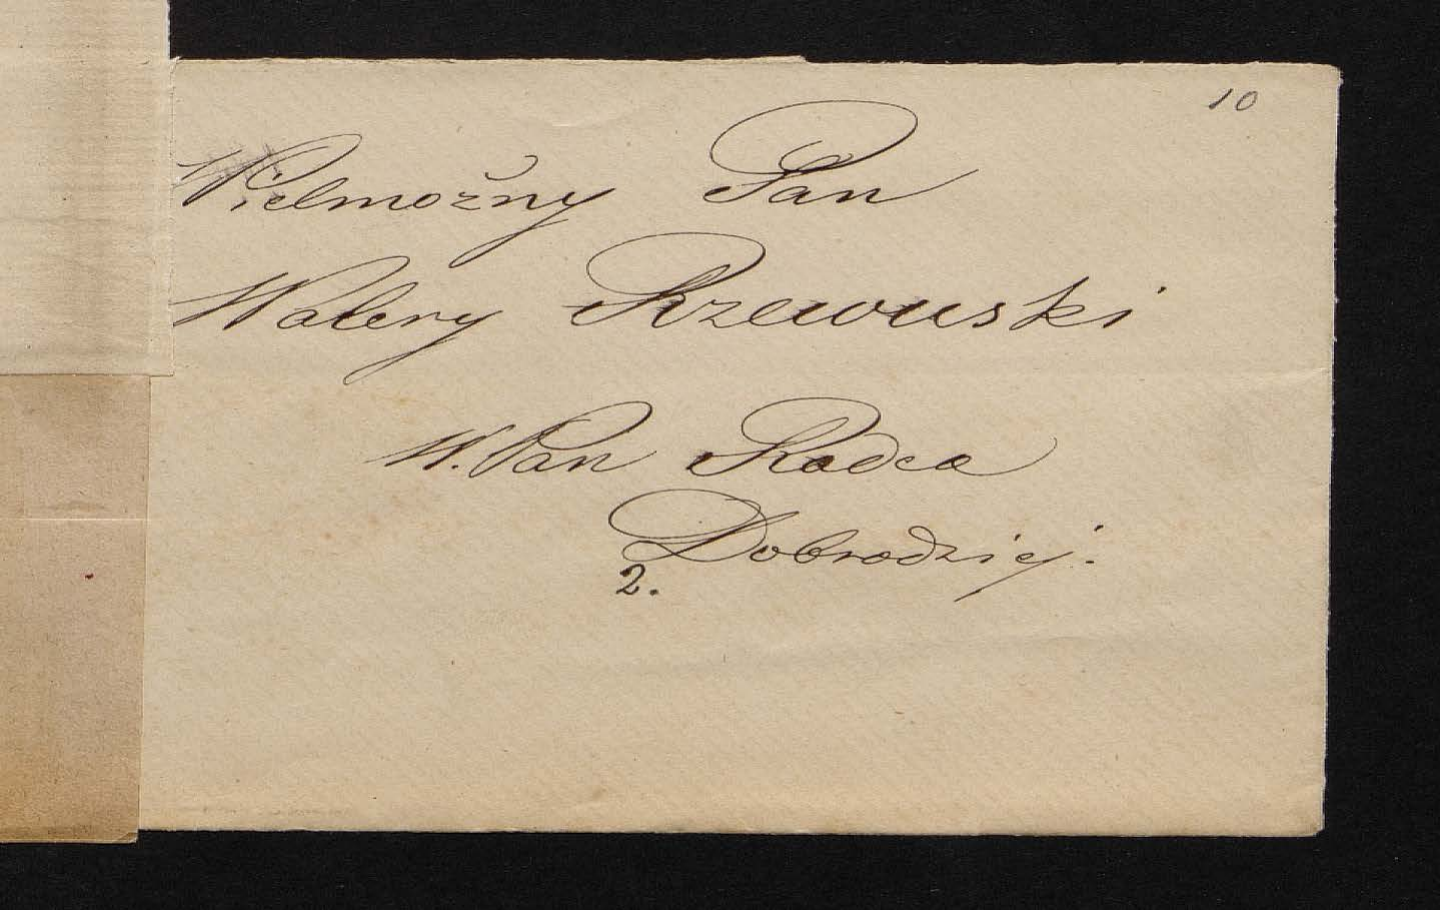 10
Wielmożny Pan
Walery Rzewuski
W. Pan Radca
Dobrodziej.
2.